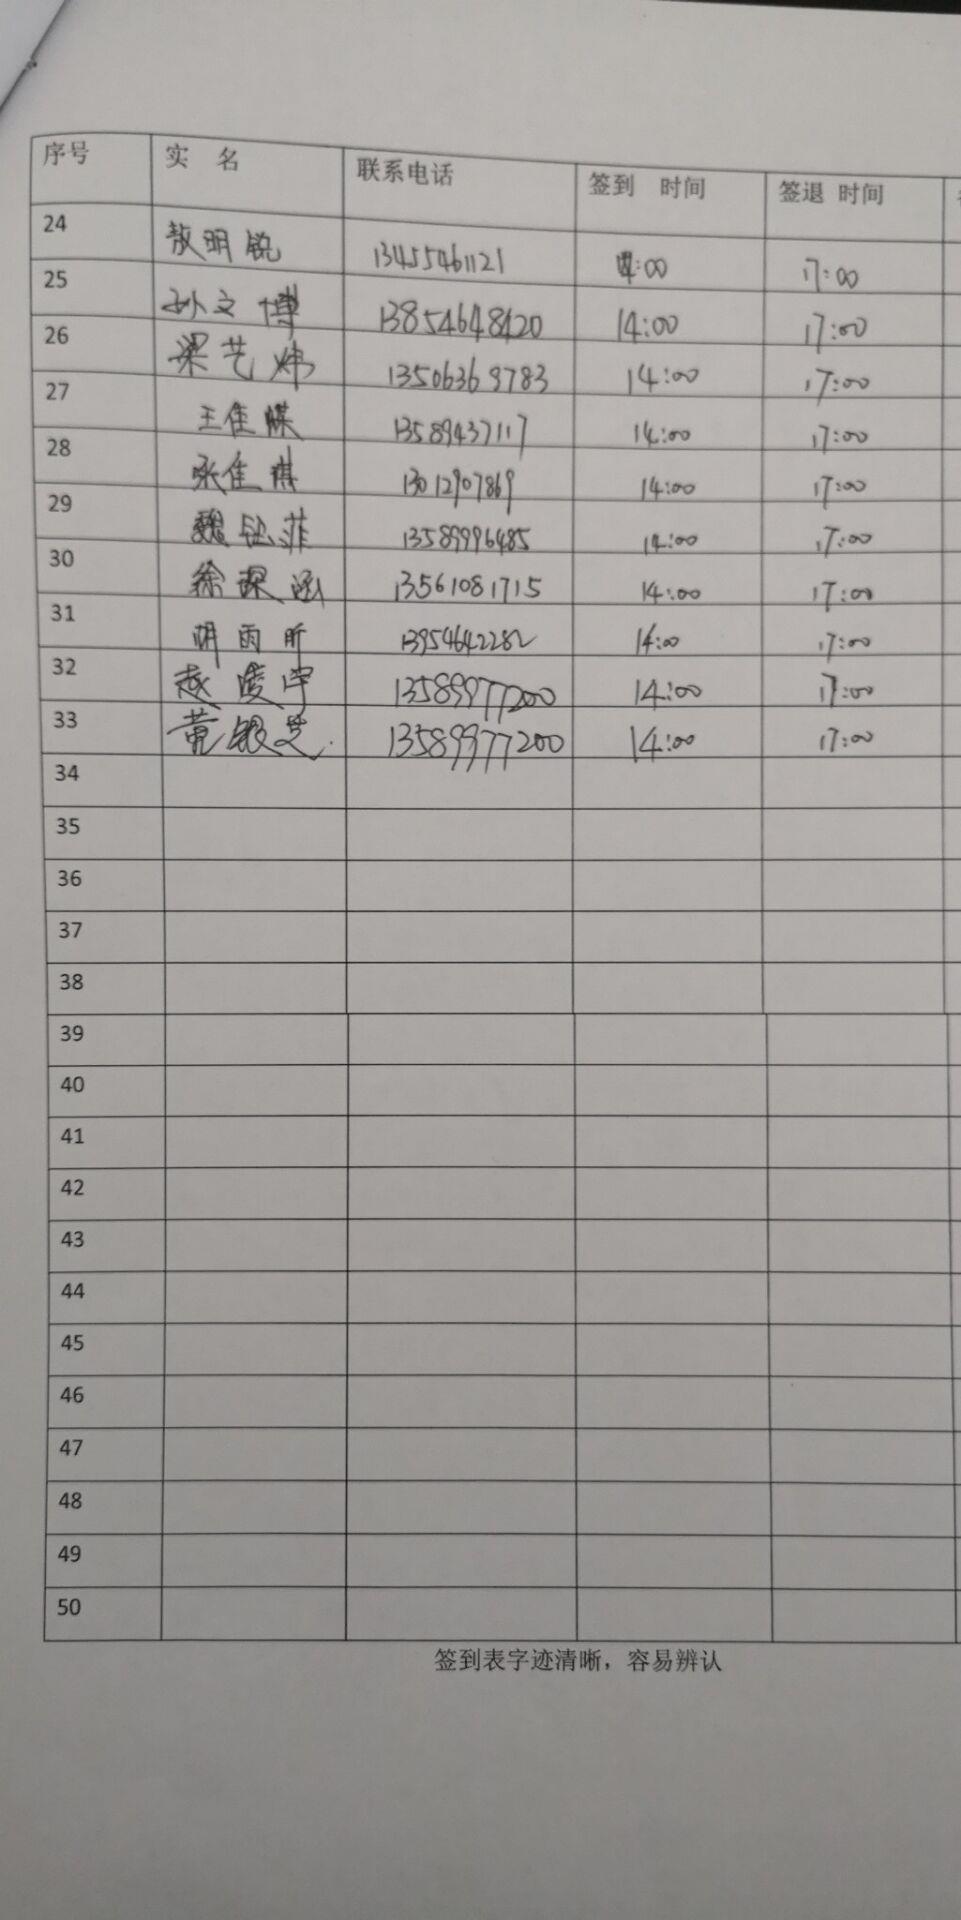 序号 实 名 联系电话 签到 时间 签退 时间
24 敖明锐 13455461121 14:00 17:00
25 孙文博 13854648420 14:00 17:00
26 梁艺炜 13506369783 14:00 17:00
27 王佳 13589437117 14:00 17:00
28 张佳琪 13012907869 14:00 17:00
29 魏 菲 13589996485 14:00 17:00
30 徐 涵 13561081715 14:00 17:00
31 胡雨昕 13954642282 14:00 17:00
32 赵凌宇 13589977200 14:00 17:00
33 黄银芝 13589977200 14:00 17:00
34
35
36
37
38
39
40
41
42
43
44
45
46
47
48
49
50
签到表字迹清晰，容易辨认